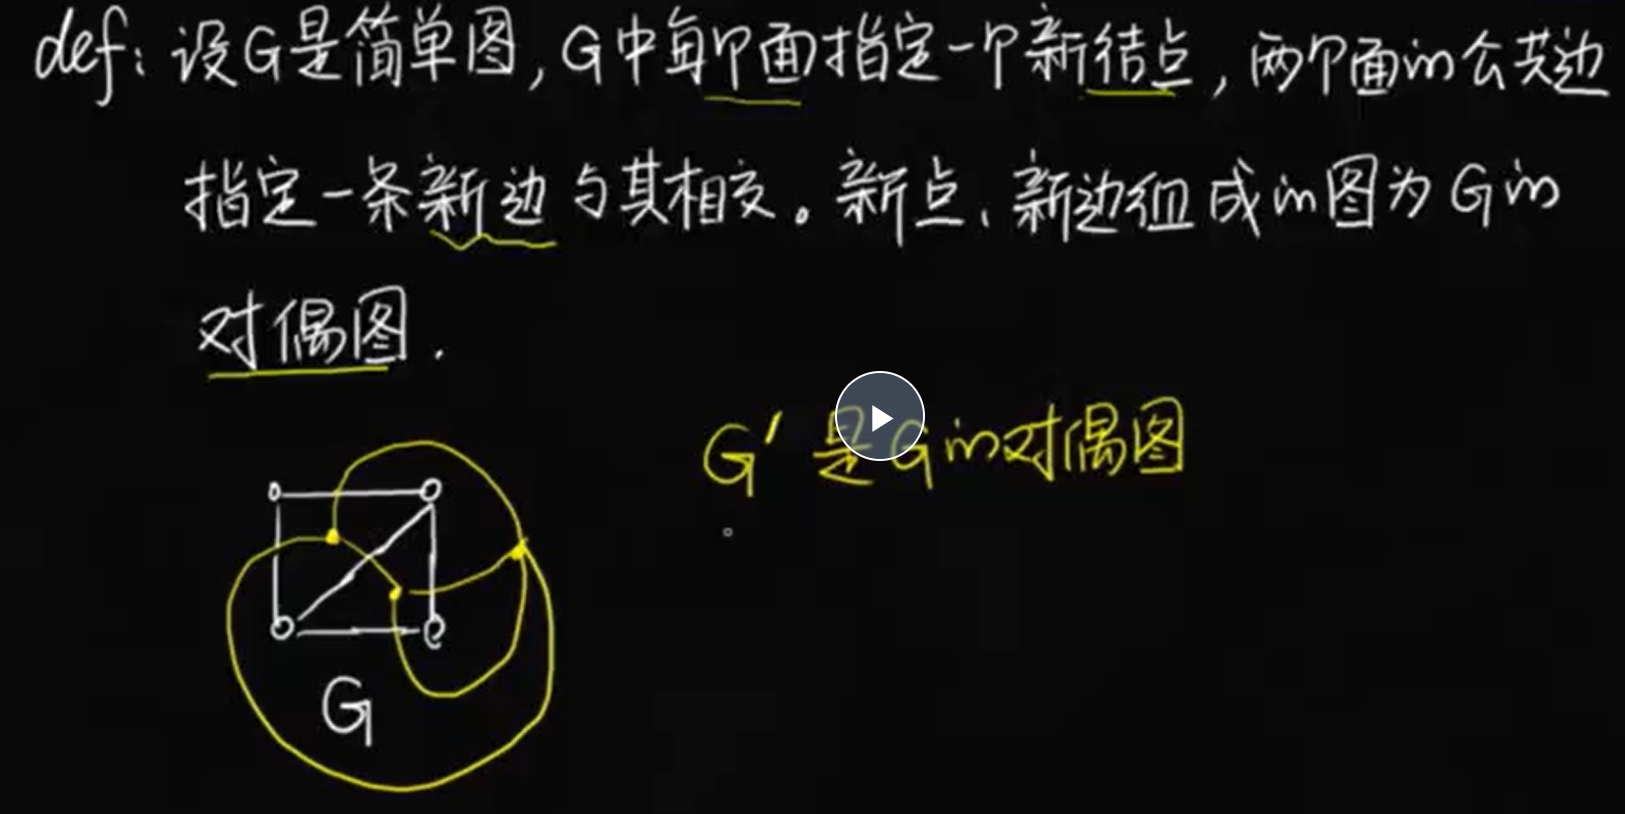 def: 设G是简单图,G中每个面指定一个新结点,两个面in公共边
指定一条新边与其相交。新点、新边组成in图为Gin
对偶图.
G' 是Gin对偶图
G